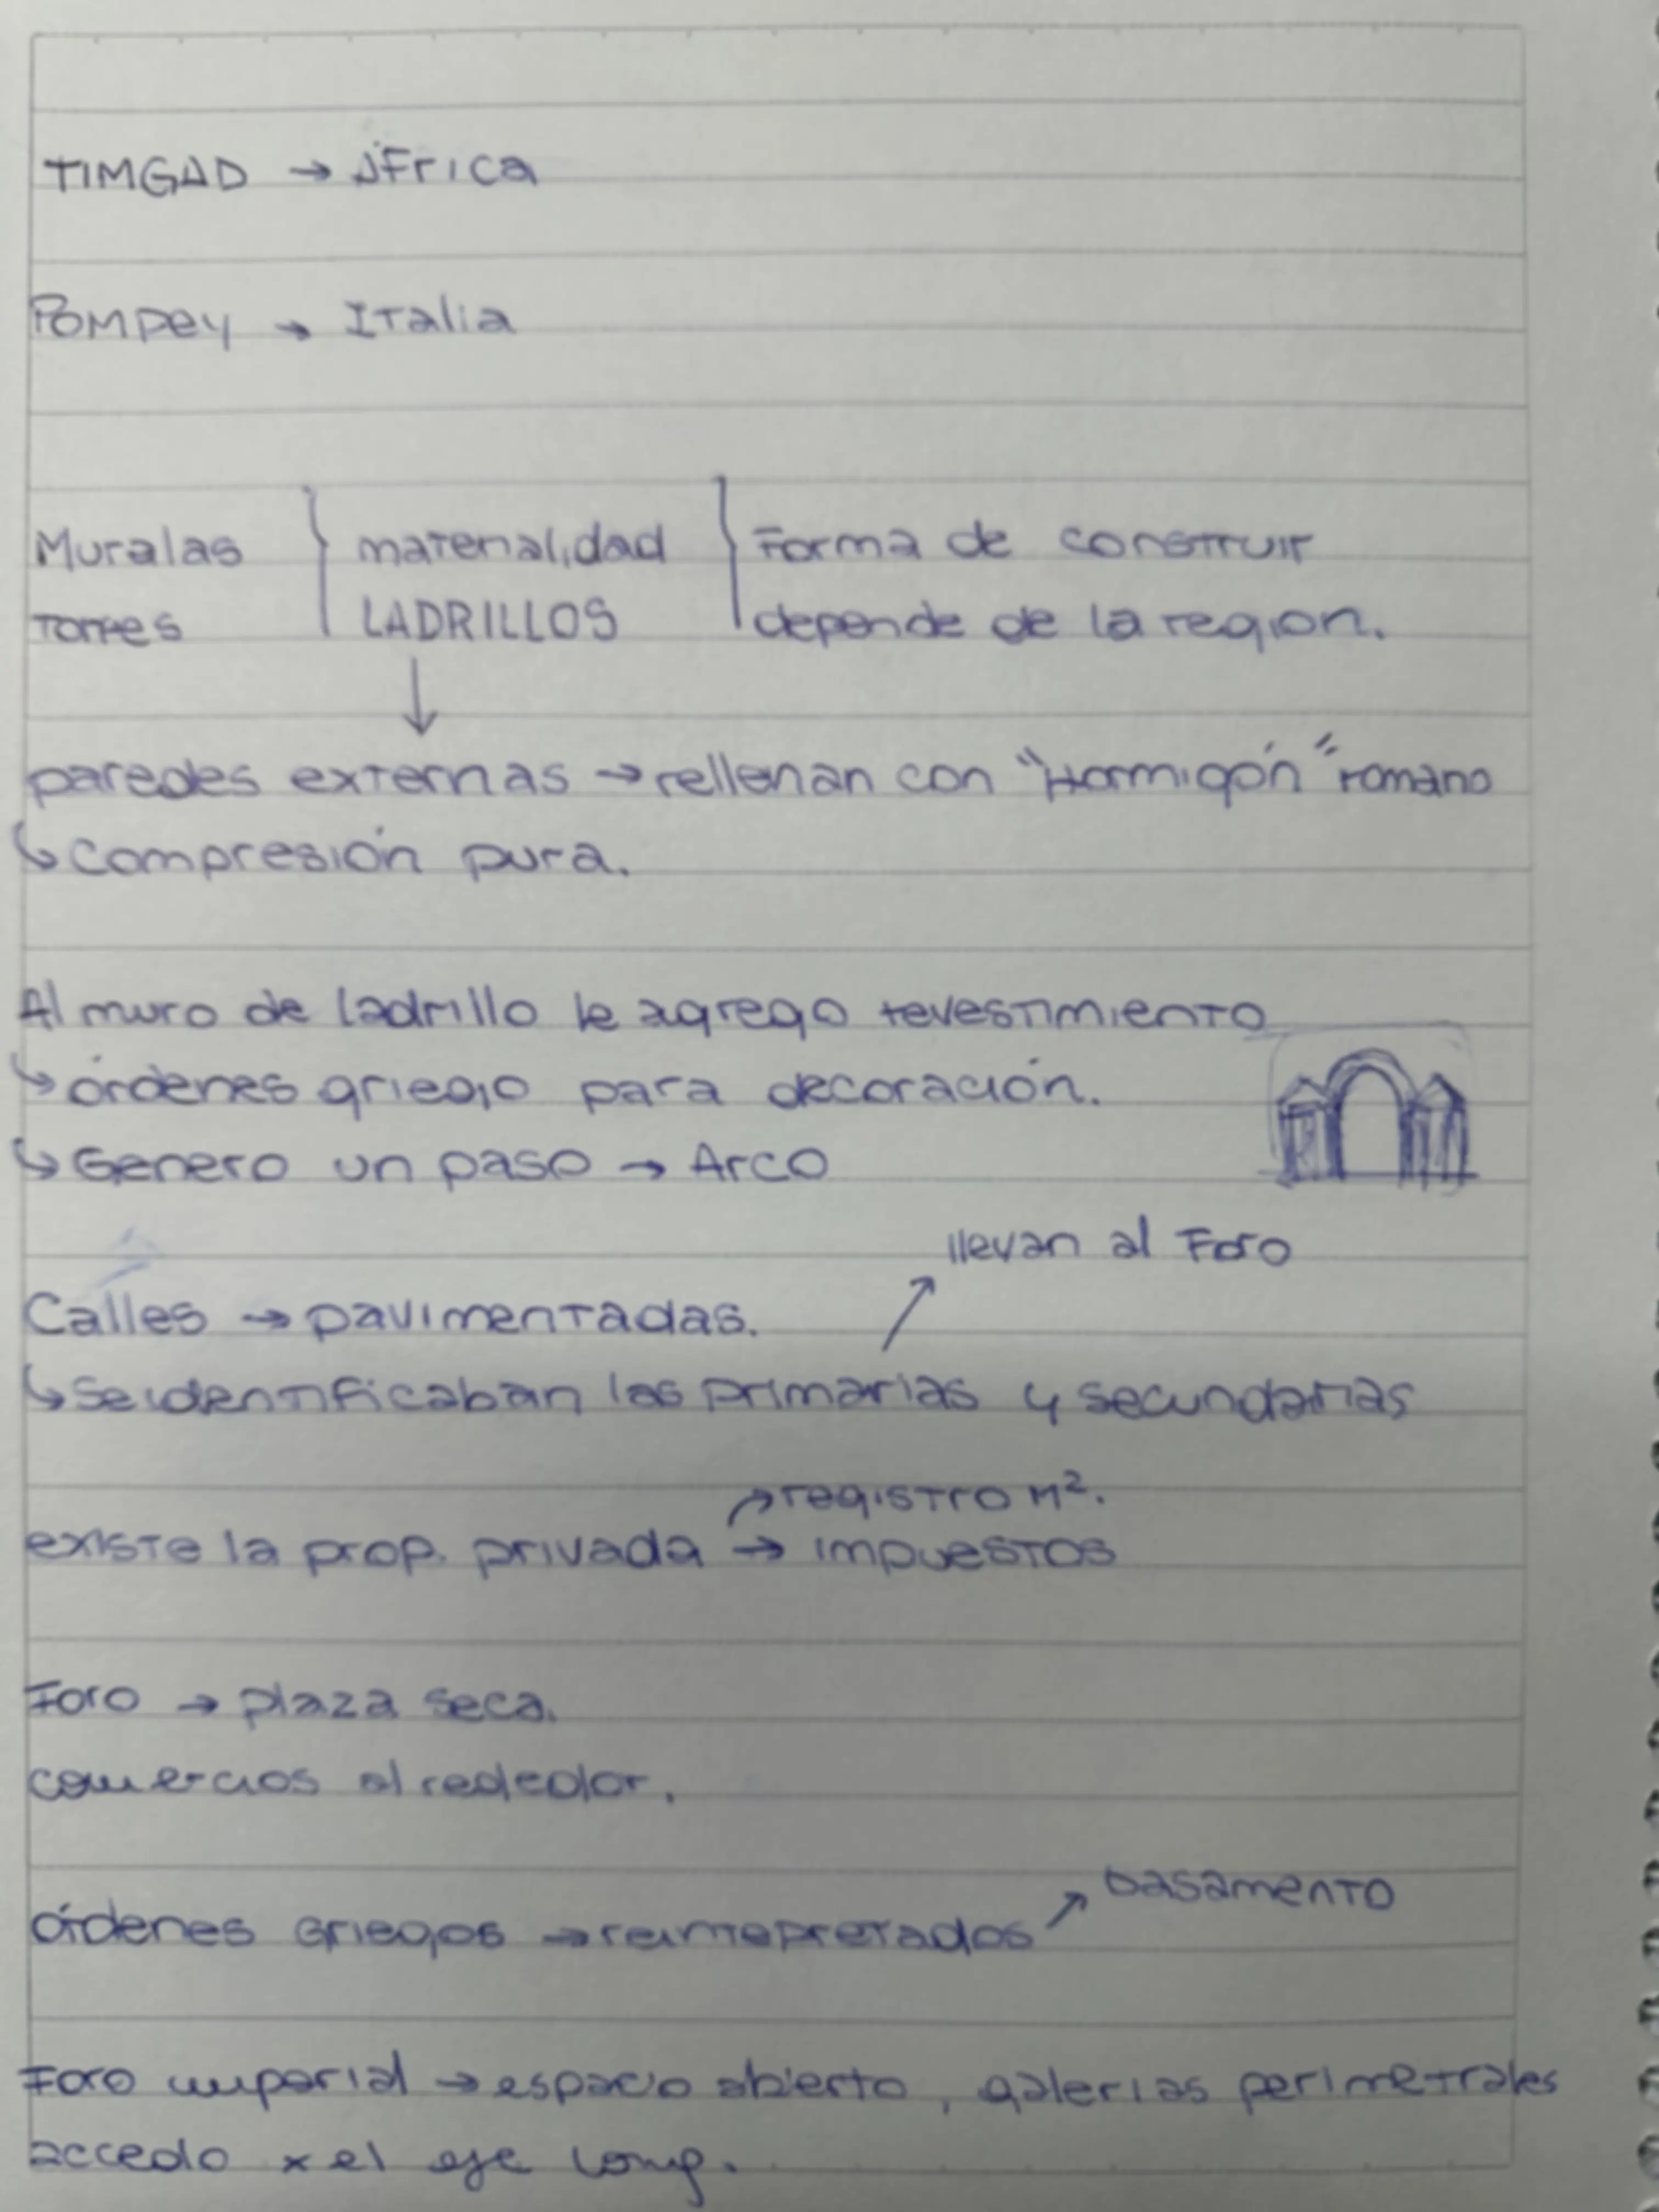 TIMGAD → áFrica
POMPEY → Italia
Muralas } materialidad } Forma de construir
Torres } LADRILLOS } depende de la region.
↓
paredes externas → rellenan con "Hormigón" romano
↳ compresión pura.
Al muro de ladrillo le agrego revestimiento
↳ órdenes griego para decoración.
↳ Genero un paso → Arco
llevan al Foro
↗
Calles → pavimentadas.
↳ se identificaban las primarias y secundarias
↗ registro M².
existe la prop. privada → impuestos
Foro → plaza seca.
comercios alrededor.
↗ basamento
órdenes Griegos → reintepretados
Foro imperial → espacio abierto, galerias perimetrales
accedo x el eje long.